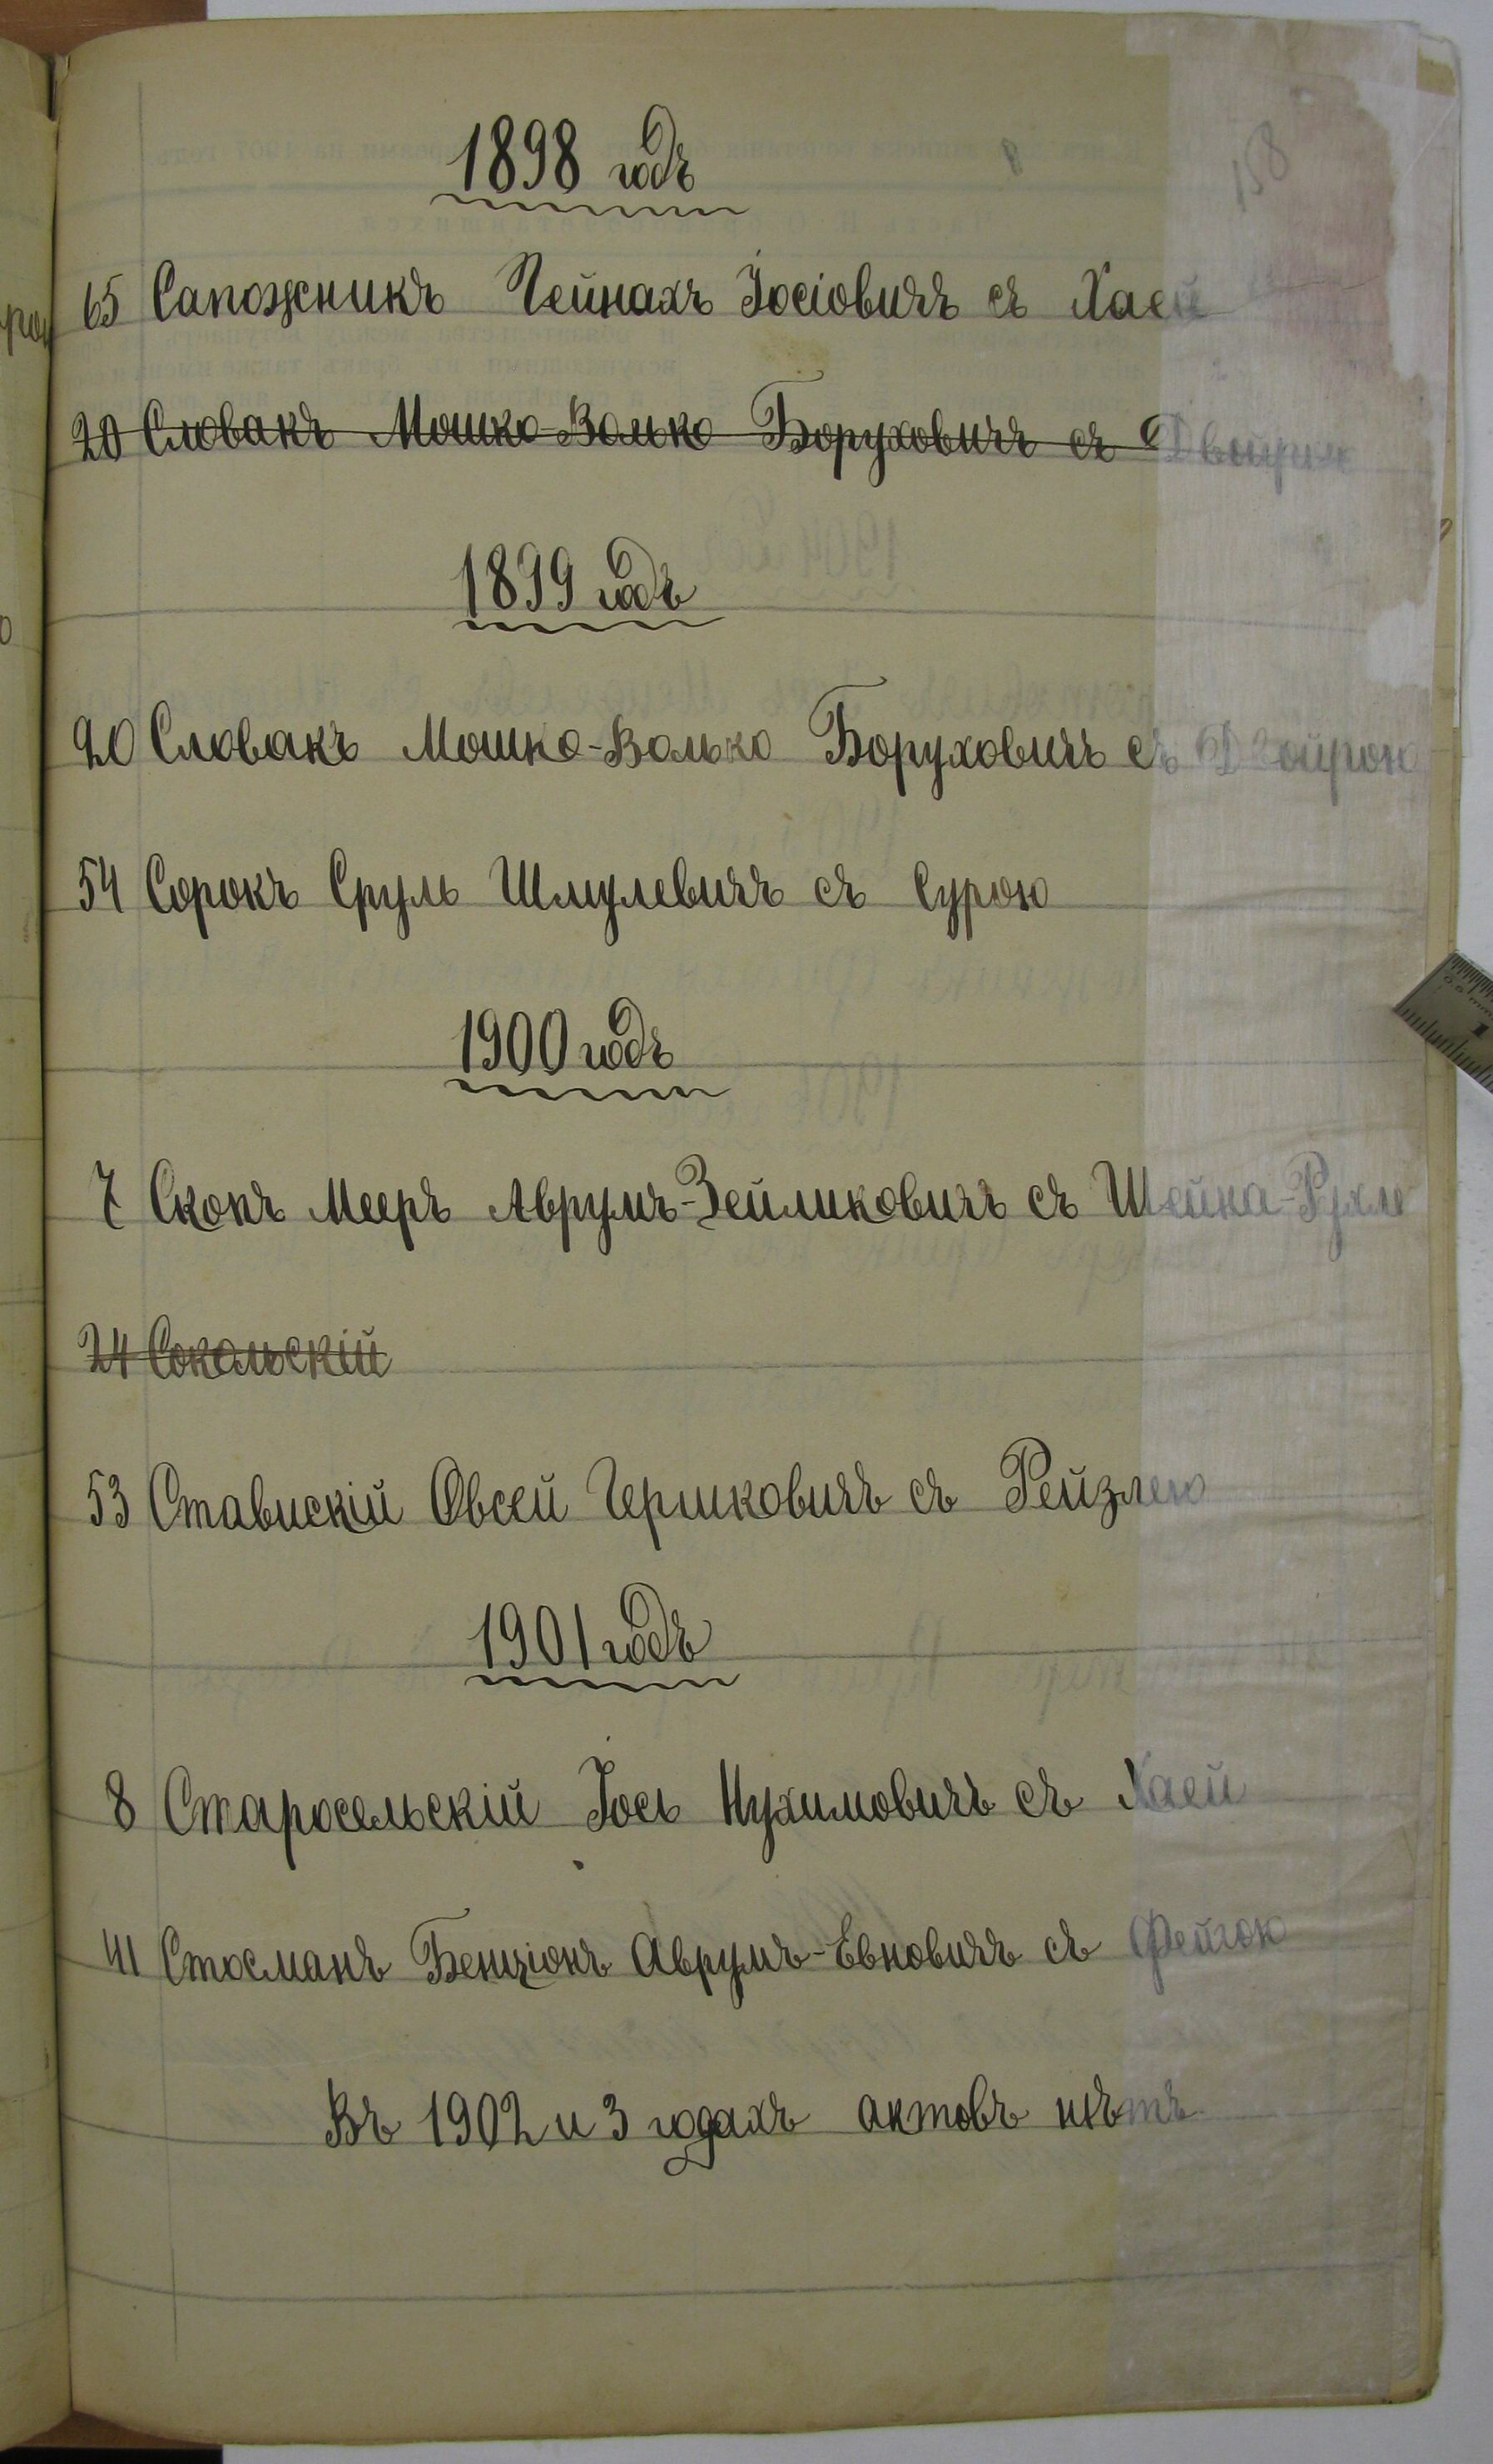 158
1898 годъ
65 Сапожникъ Пейнахъ Іосіовичъ съ Хаей
20 Словакъ Мошко-Волько Боруховичъ съ Двойрою
1899 годъ
20 Словакъ Мошко-Волько Боруховичъ съ Двойрою
54 Сорокъ Сруль Шмулевичъ съ Сурою
1900 годъ
7 Скопъ Мееръ Аврумъ-Зейликовичъ съ Шейна-Рухле
24 Сокольскій
53 Ставискій Овсей Гершковичъ съ Рейзлею
1901 годъ
8 Старосельскій Іось Нухимовичъ съ Хаей
41 Стосманъ Бенціонъ Аврумъ-Евновичъ съ Фейгою
Въ 1902 и 3 годахъ актовъ нѣтъ